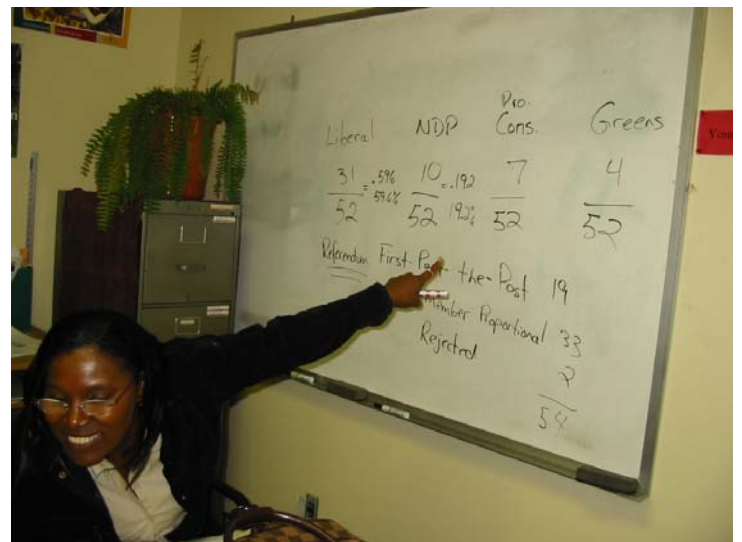 Liberal NDP Pro. Cons. Greens
31/52 = .596 59.6% 10/52 = .192 19.2% 7/52 4/52
Referendum First-Past-the-Post 19
Member Proportional 33
Rejected 2
54
You